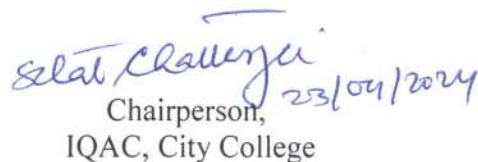 Chatterjee
23/04/2024
Chairperson,
IQAC, City College